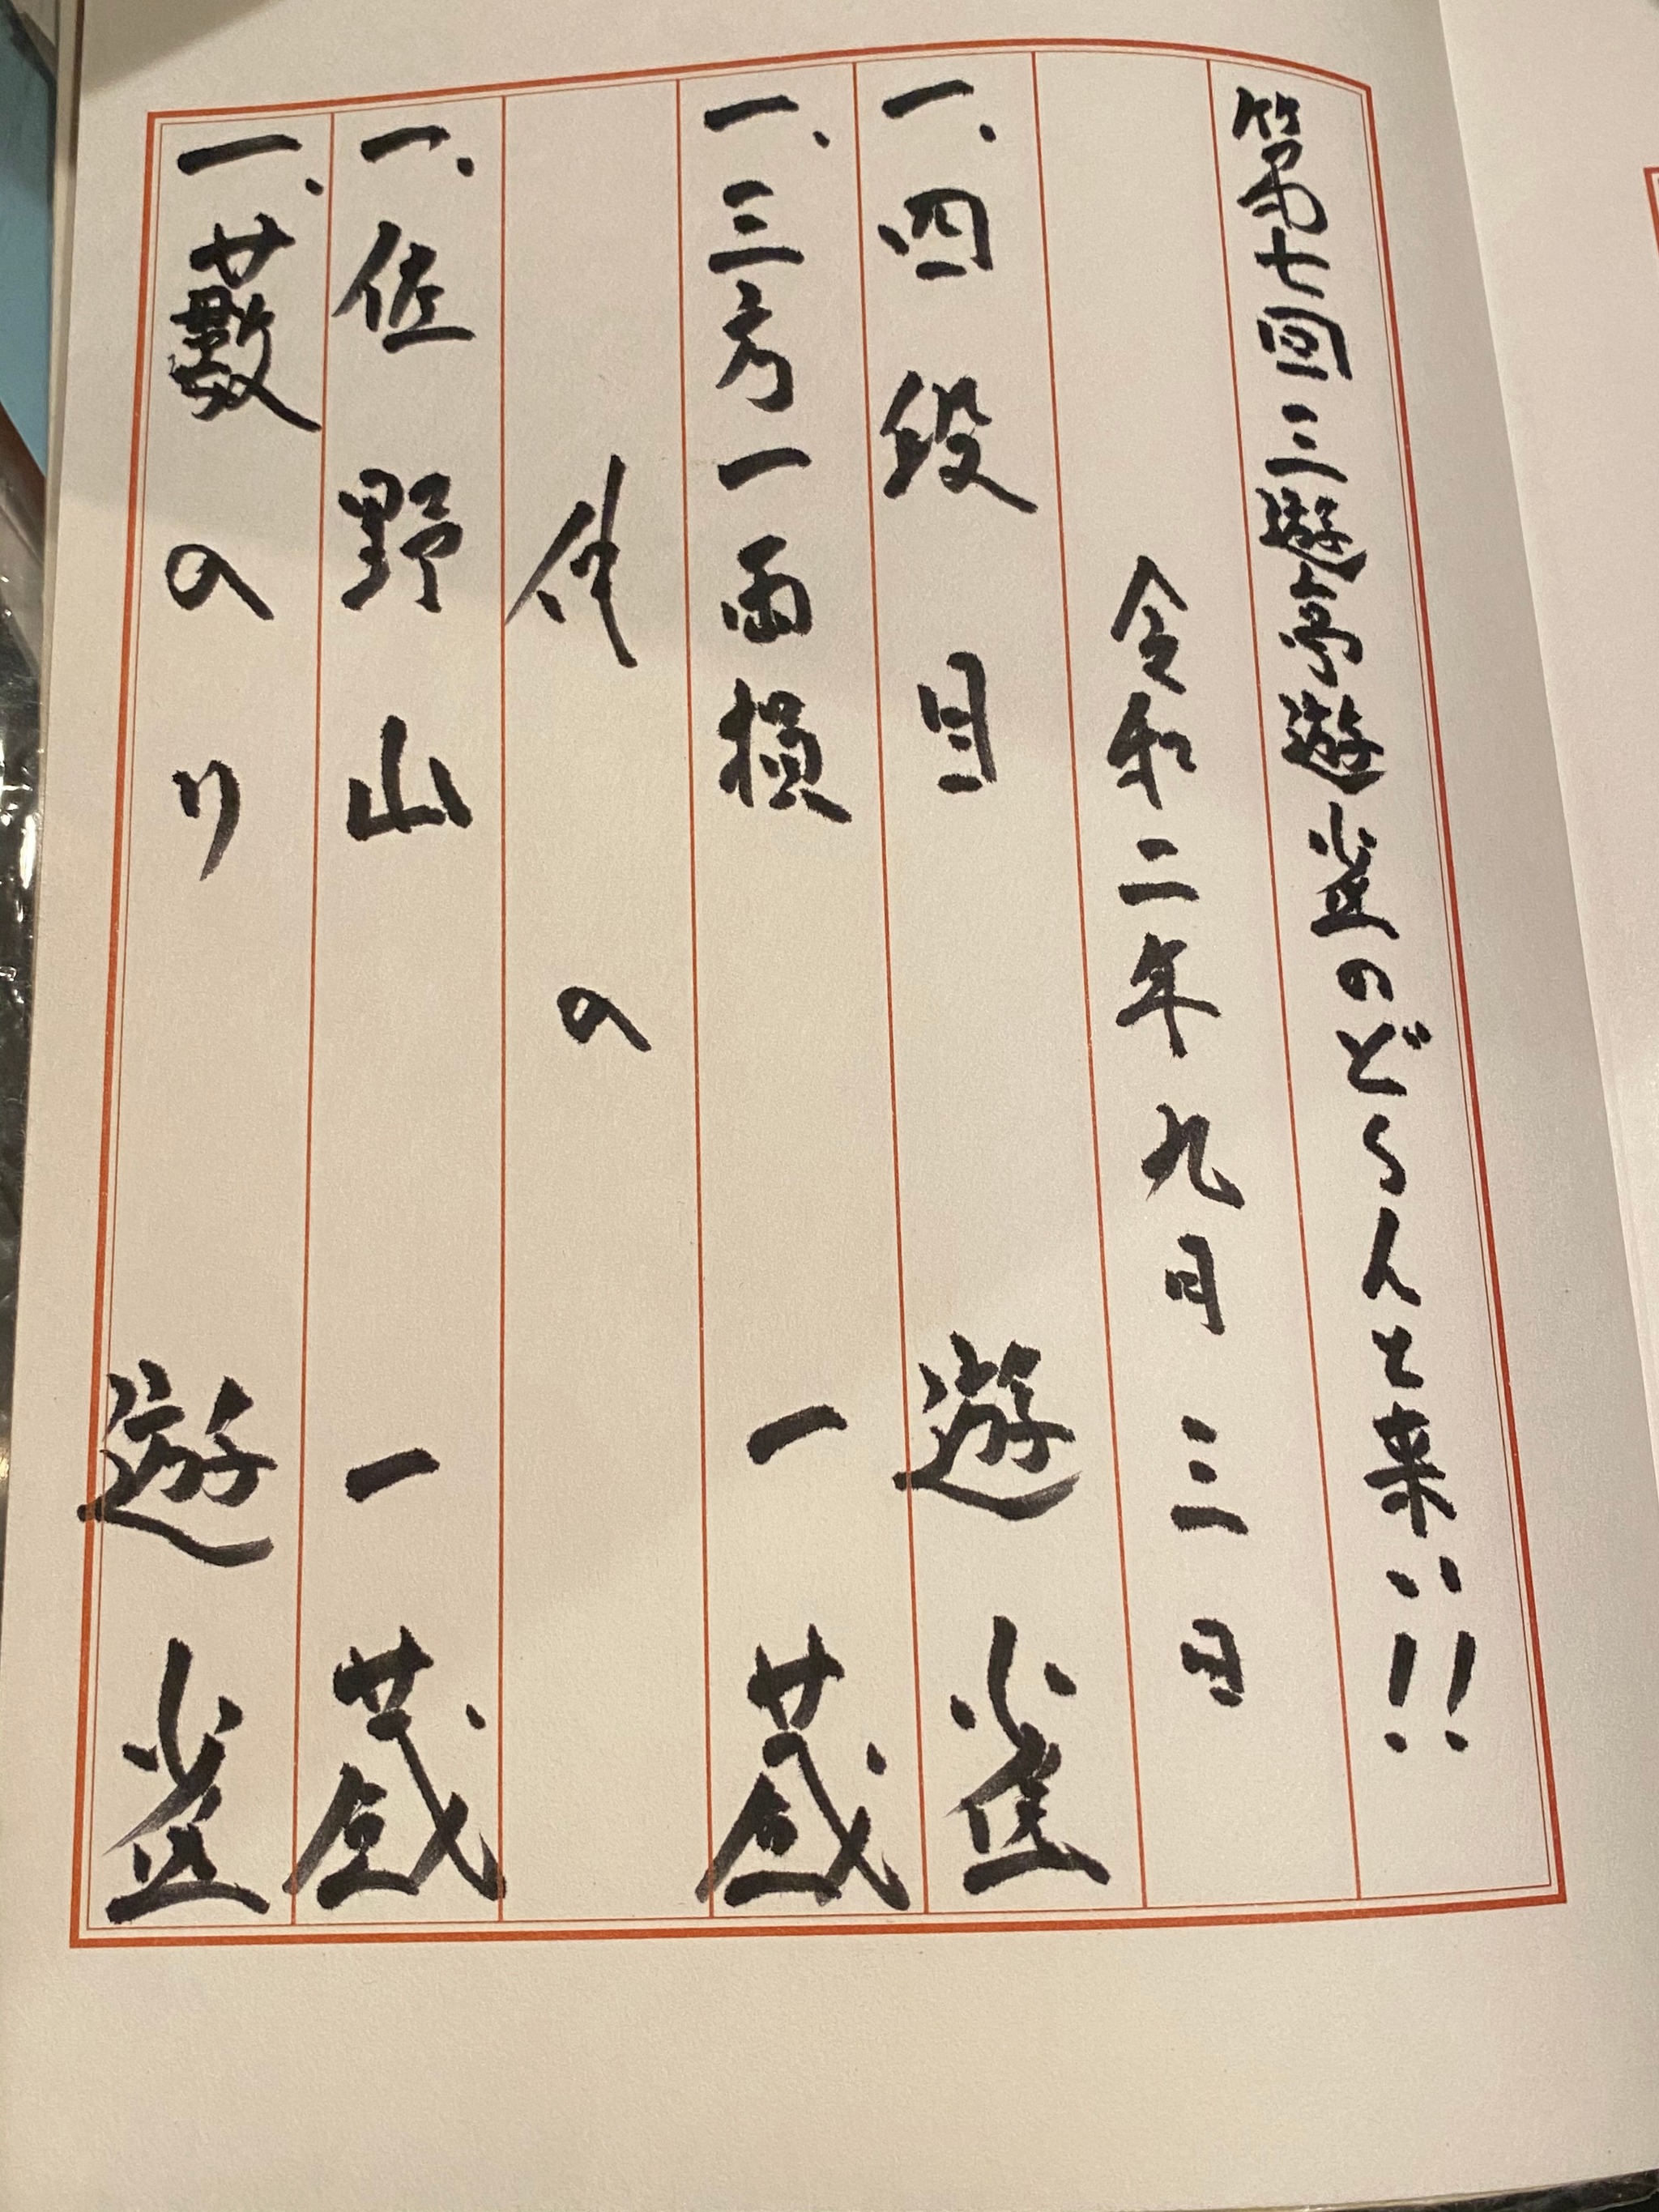 第七回三遊亭遊雀のど〜んと来い!!
令和二年九月三日
一、四段目 遊雀
一、三方一両損 一蔵
仲入
一、佐野山 一蔵
一、藪入り 遊雀